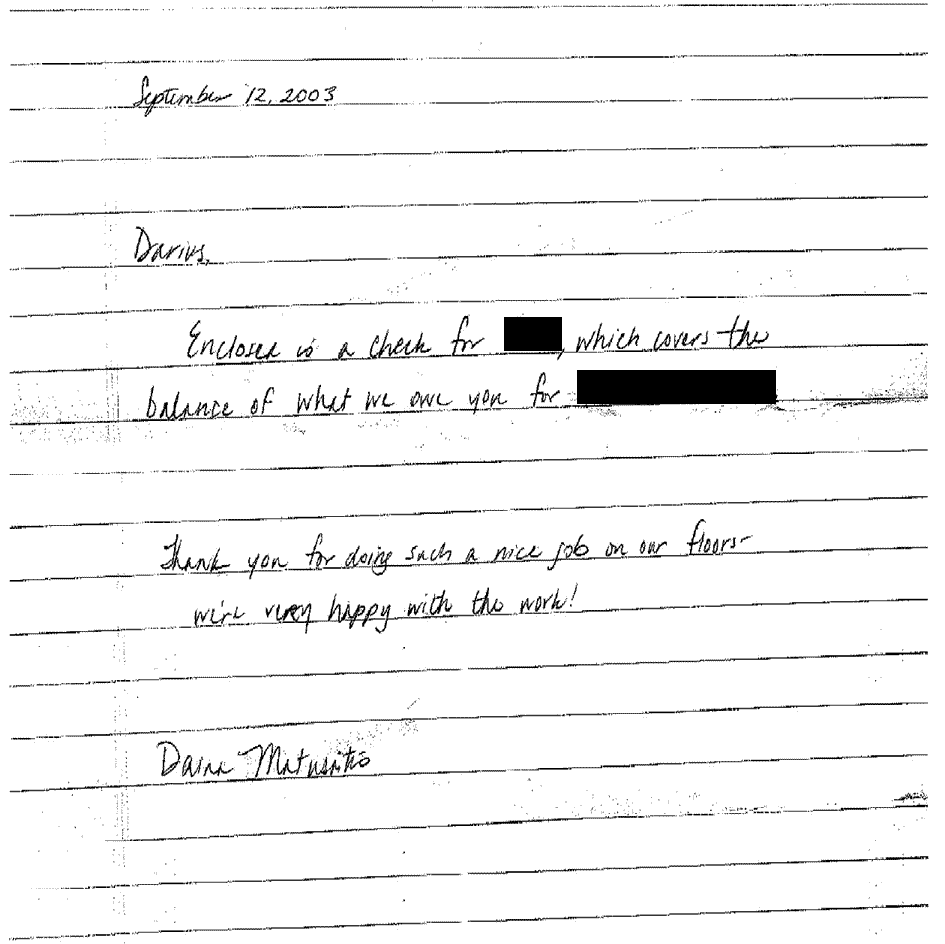 September 12, 2003
Darius,
Enclosed is a check for , which covers the
balance of what we owe you for
Thank you for doing such a nice job on our floors-
we're very happy with the work!
Daina Matusaitis